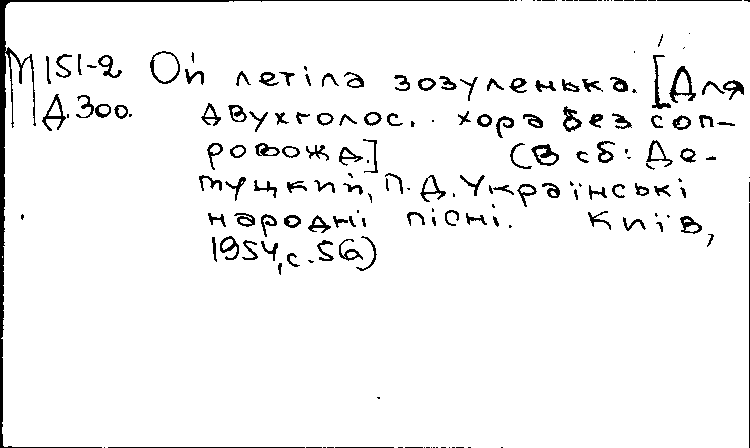 М151-2 Ой летіла зозуленька. [Для
Д.300. двухголос. хора без соп-
ровожд.] (В сб: Де-
муцкий, П. Д. Українські
народні пісні. Київ,
1954, с. 56)